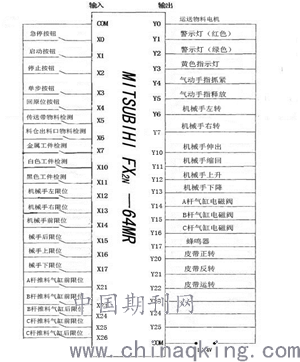 输入
输出
COM
急停按钮 X0
启动按钮 X1
停止按钮 X2
单步按钮 X3
回原位按钮 X4
传送带物料检测 X5
料仓出料口物料检测 X6
金属工件检测 X7
白色工件检测 X10
黑色工件检测 X11
机械手左限位 X12
机械手右限位 X13
机械手前限位 X14
械手后限位 X15
械手上限位 X16
械手下限位 X17
A杆推料气缸前限位 X21
B杆推料气缸前限位 X22
B杆推料气缸后限位
C杆推料气缸前限位 X25
C杆推料气缸后限位 X26
MITSUBIHI FX2N —64MR
Y0 运送物料电机
Y1 警示灯（红色）
Y2 警示灯（绿色）
Y3 黄色指示灯
Y4 气动手指抓紧
Y5 气动手指释放
Y6 机械手左转
Y7 机械手右转
Y10 机械手伸出
Y11 机械手缩回
Y12 机械手上升
Y13 机械手下降
Y14 A杆气缸电磁阀
Y15 B杆气缸电磁阀
Y16 C杆气缸电磁阀
Y17 蜂鸣器
Y20 皮带正转
Y21 皮带反转
Y22 皮带运转
Y23
Y24
Y25
COM
中国期刊网
www.chinaqking.com